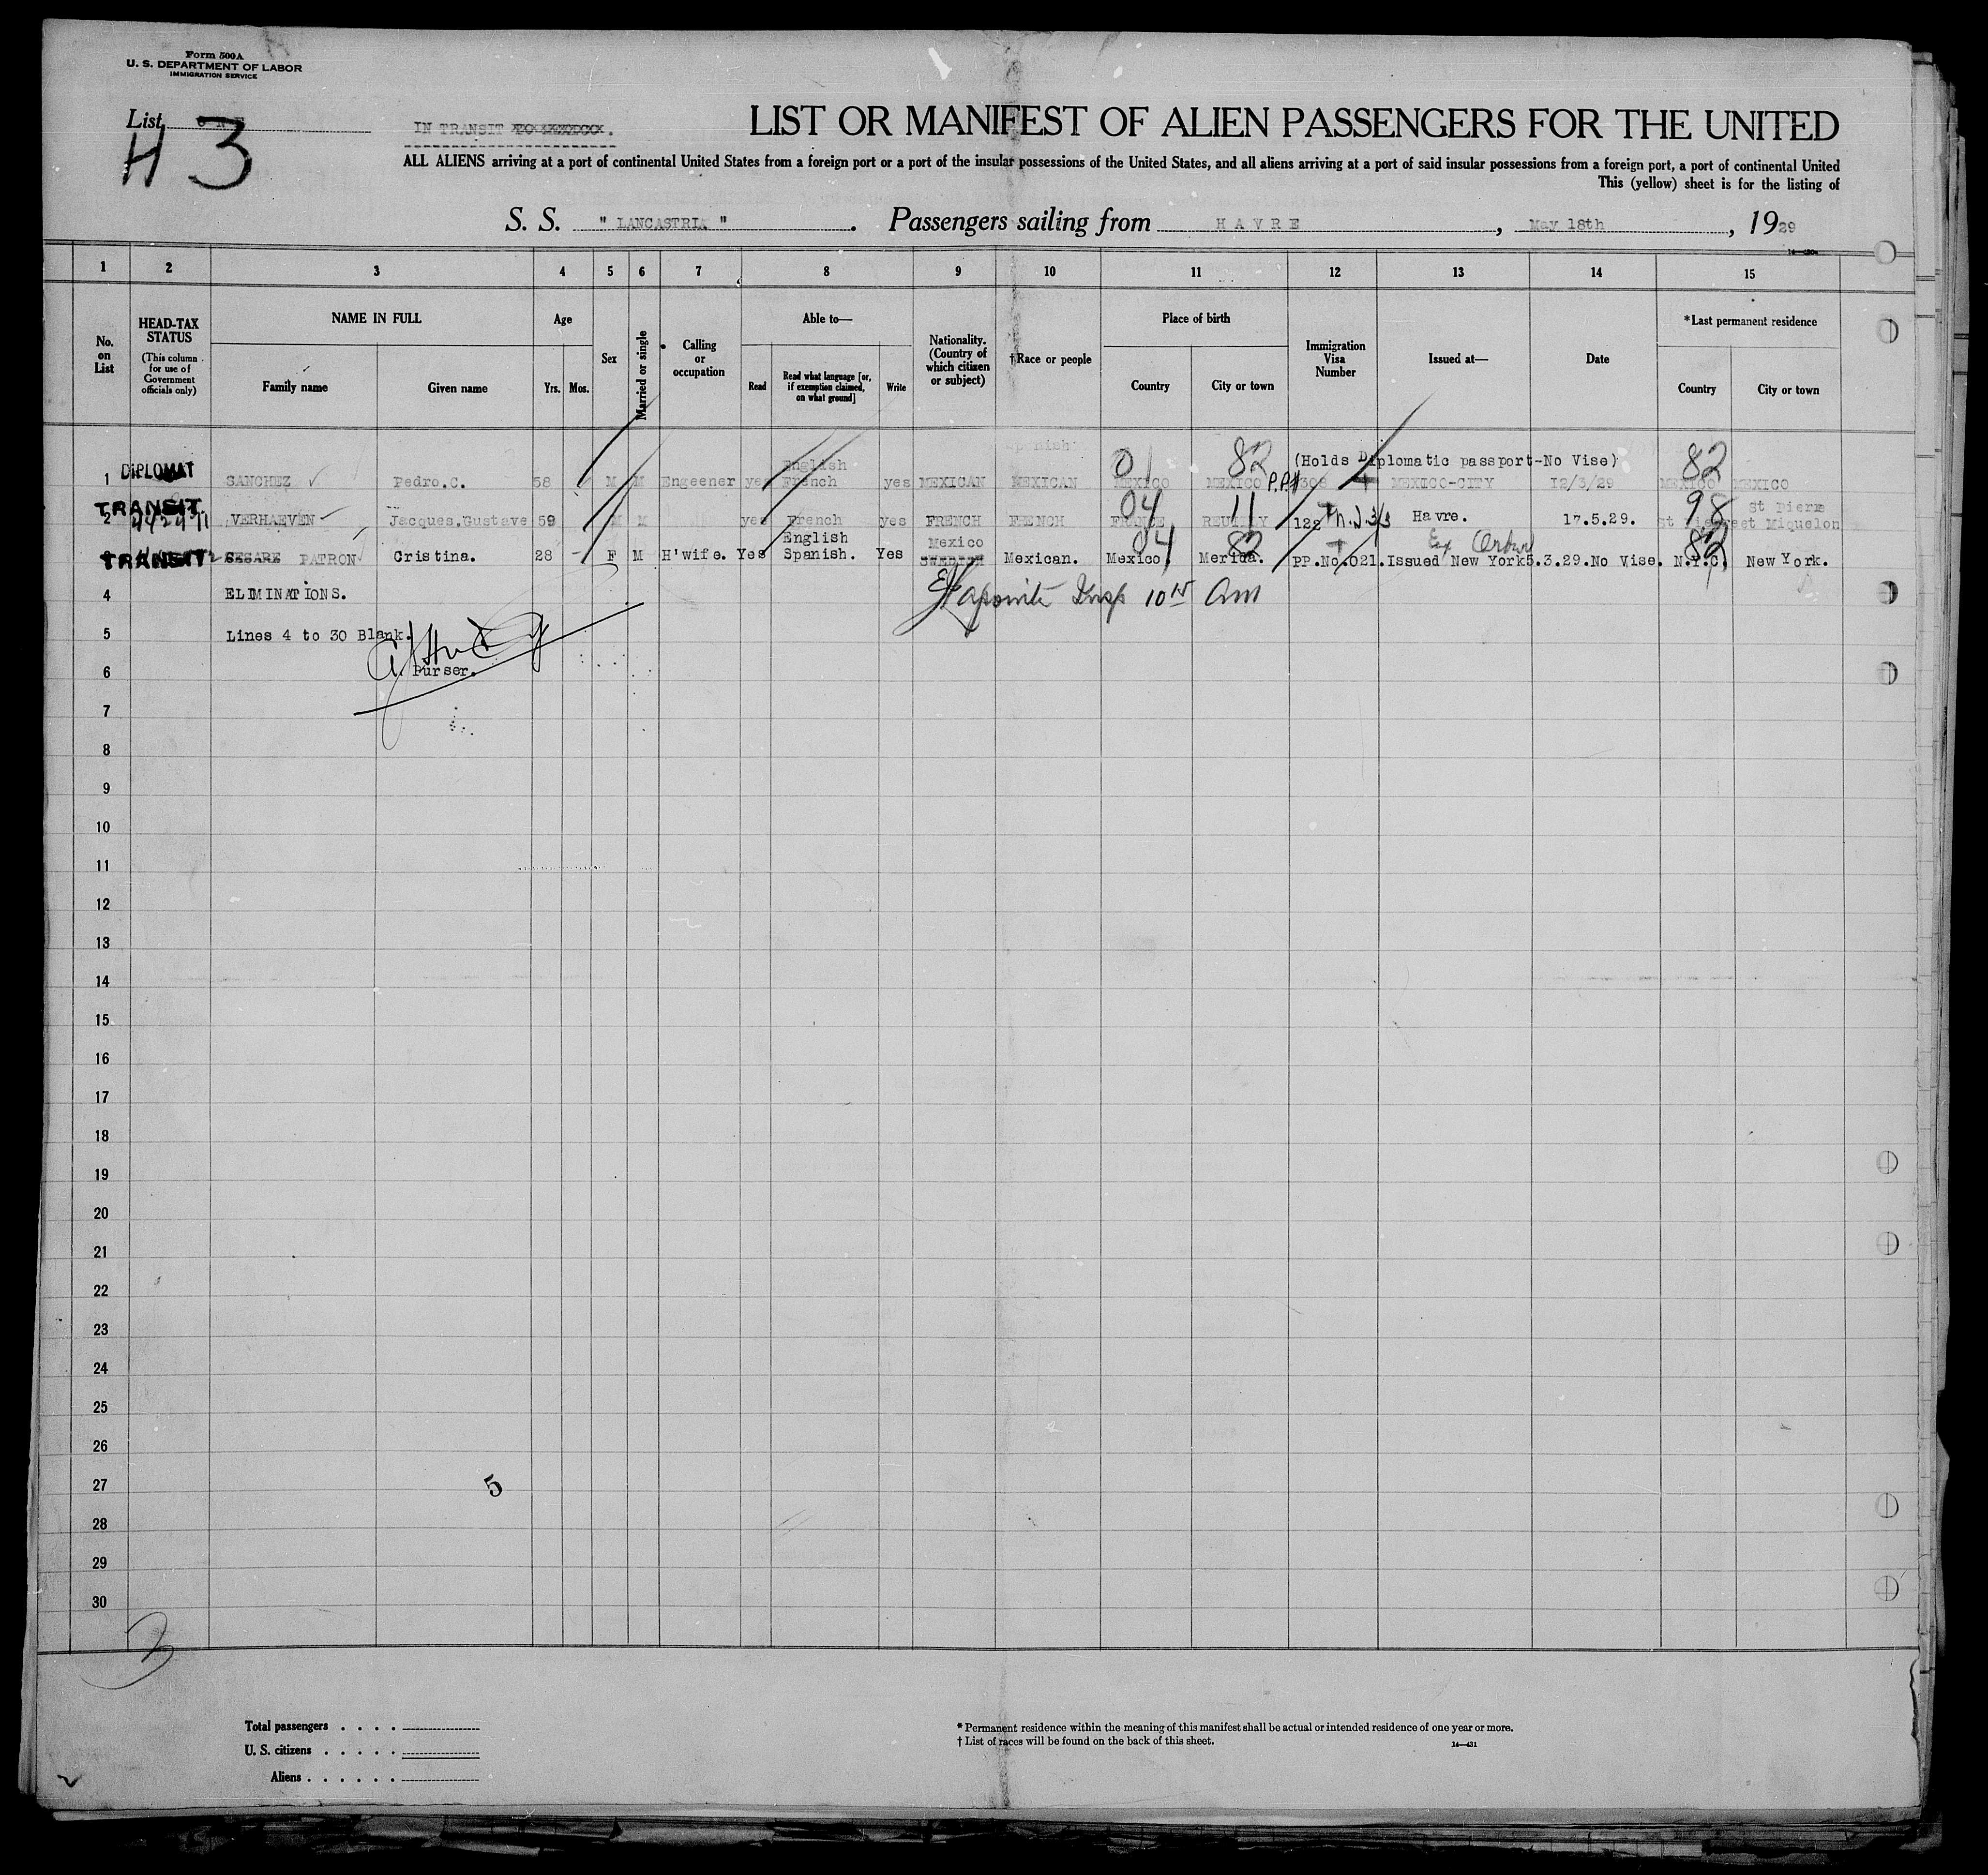 Form 500A
U. S. DEPARTMENT OF LABOR
IMMIGRATION SERVICE
List ONE
H 3
IN TRANSIT
LIST OR MANIFEST OF ALIEN PASSENGERS FOR THE UNITED
ALL ALIENS arriving at a port of continental United States from a foreign port or a port of the insular possessions of the United States, and all aliens arriving at a port of said insular possessions from a foreign port, a port of continental United
This (yellow) sheet is for the listing of
S. S. " LANCASTRIA " . Passengers sailing from HAVRE , May 18th , 1929
1 2 3 4 5 6 7 8 9 10 11 12 13 14 15
No. on List
HEAD-TAX STATUS
(This column for use of Government officials only)
NAME IN FULL
Family name
Given name
Age
Yrs. Mos.
Sex
Married or single
Calling or occupation
Able to—
Read
Read what language [or, if exemption claimed, on what ground]
Write
Nationality. (Country of which citizen or subject)
†Race or people
Place of birth
Country
City or town
Immigration Visa Number
Issued at—
Date
*Last permanent residence
Country
City or town
Spanish
English 01 82 (Holds Diplomatic passport-No Vise) 82
1 DIPLOMAT SANCHEZ Pedro.C. 58 M M Engeener yes French yes MEXICAN MEXICAN MEXICO MEXICO P.P# 308 MEXICO-CITY 12/3/29 MEXICO MEXICO
TRANSIT 04 11 98 St Pierre
2 VERHAEVEN Jacques.Gustave 59 M M yes French yes FRENCH FRENCH FRANCE REUILLY 128 Havre. 17.5.29. St Pierre et Miquelon
English Mexico 04 82 82
3 TRANSIT CESARE PATRON Cristina. 28 - F M H'wife. Yes Spanish. Yes SWEDISH Mexican. Mexico. Merida. PP.No.021. Issued New York 5.3.29. No Vise. N.Y.C. New York.
4 ELIMINATIONS.
Insp 10 15 am
5 Lines 4 to 30 Blank.
6 Purser.
7
8
9
10
11
12
13
14
15
16
17
18
19
20
21
22
23
24
25
26
27 5
28
29
30
3
Total passengers . . . .
U. S. citizens . . . . .
Aliens . . . . . .
* Permanent residence within the meaning of this manifest shall be actual or intended residence of one year or more.
† List of races will be found on the back of this sheet.
14—431